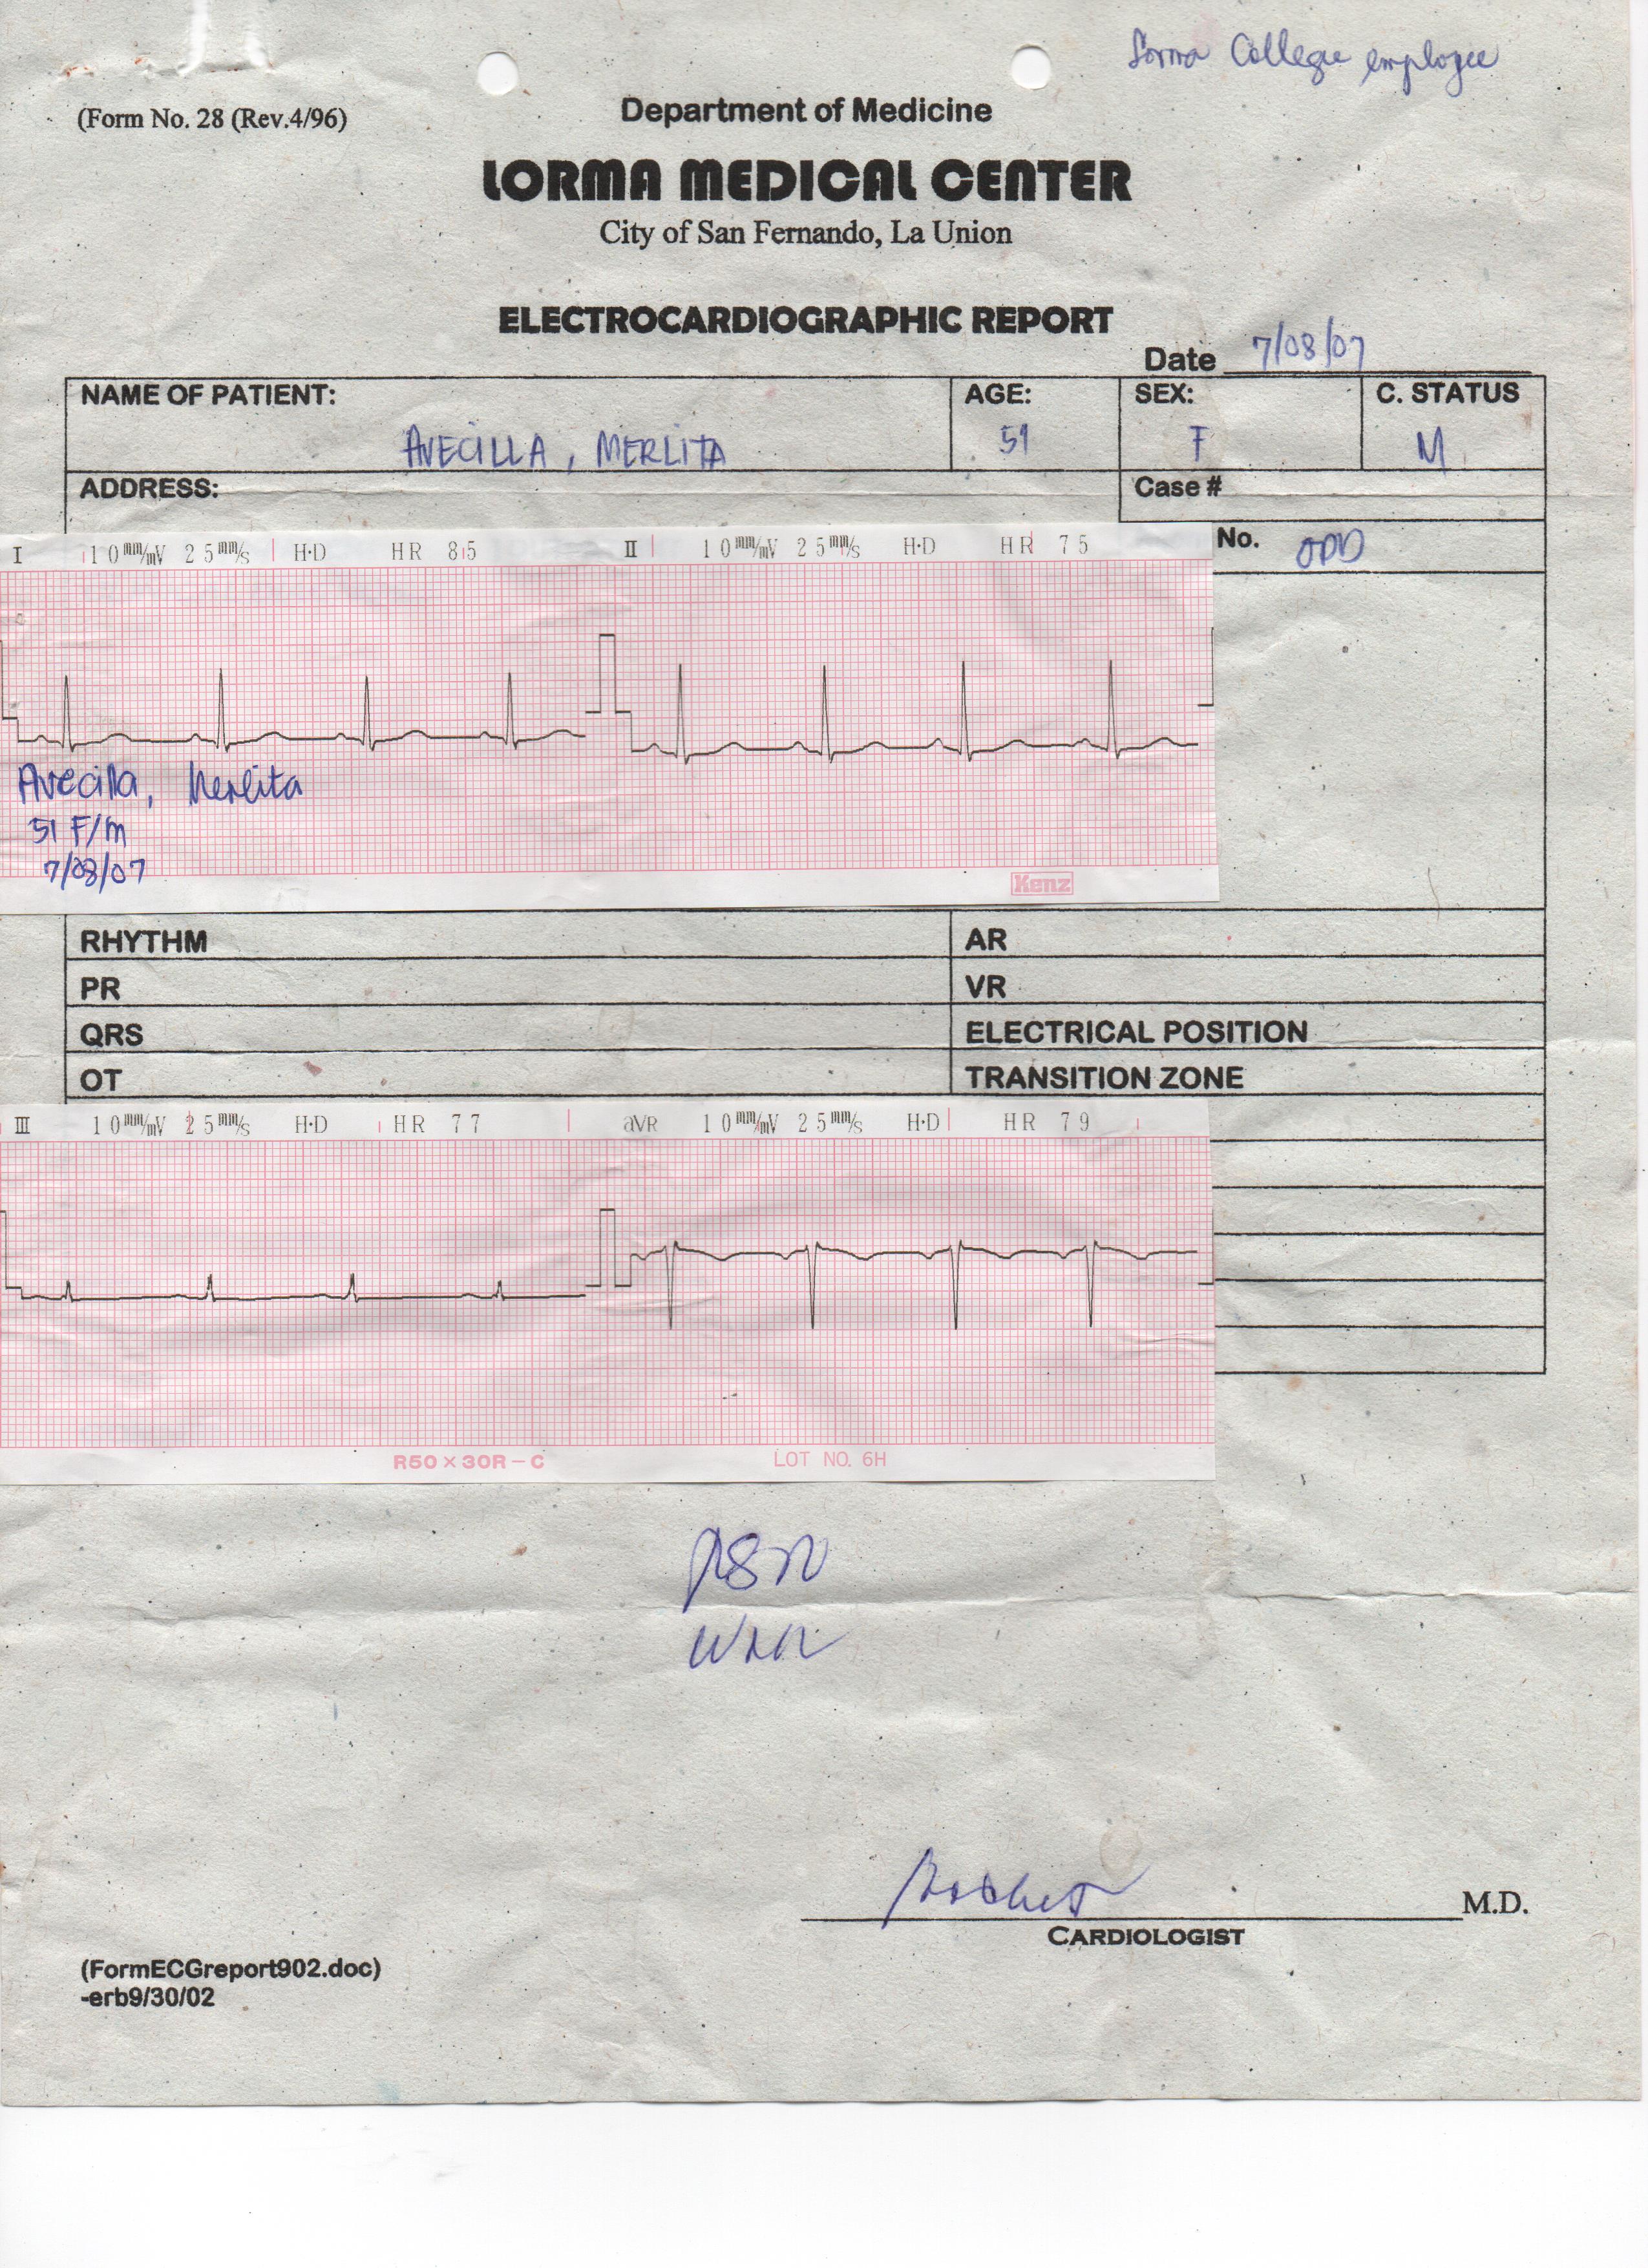 Lorma College employee
(Form No. 28 (Rev.4/96)
Department of Medicine
LORMA MEDICAL CENTER
City of San Fernando, La Union
ELECTROCARDIOGRAPHIC REPORT
Date 7/08/07
NAME OF PATIENT: AGE: SEX: C. STATUS
AVECILLA, MERLITA 51 F M
ADDRESS: Case #
No. OPD
I 10mm/mV 25mm/s H·D HR 85 II 10mm/mV 25mm/s H·D HR 75
Avecilla, Merlita
51 F/m
7/08/07
Kenz
RHYTHM AR
PR VR
QRS ELECTRICAL POSITION
QT TRANSITION ZONE
III 10mm/mV 25mm/s H·D HR 77 aVR 10mm/mV 25mm/s H·D HR 79
R50×30R-C LOT NO. 6H
M.D.
CARDIOLOGIST
(FormECGreport902.doc)
-erb9/30/02